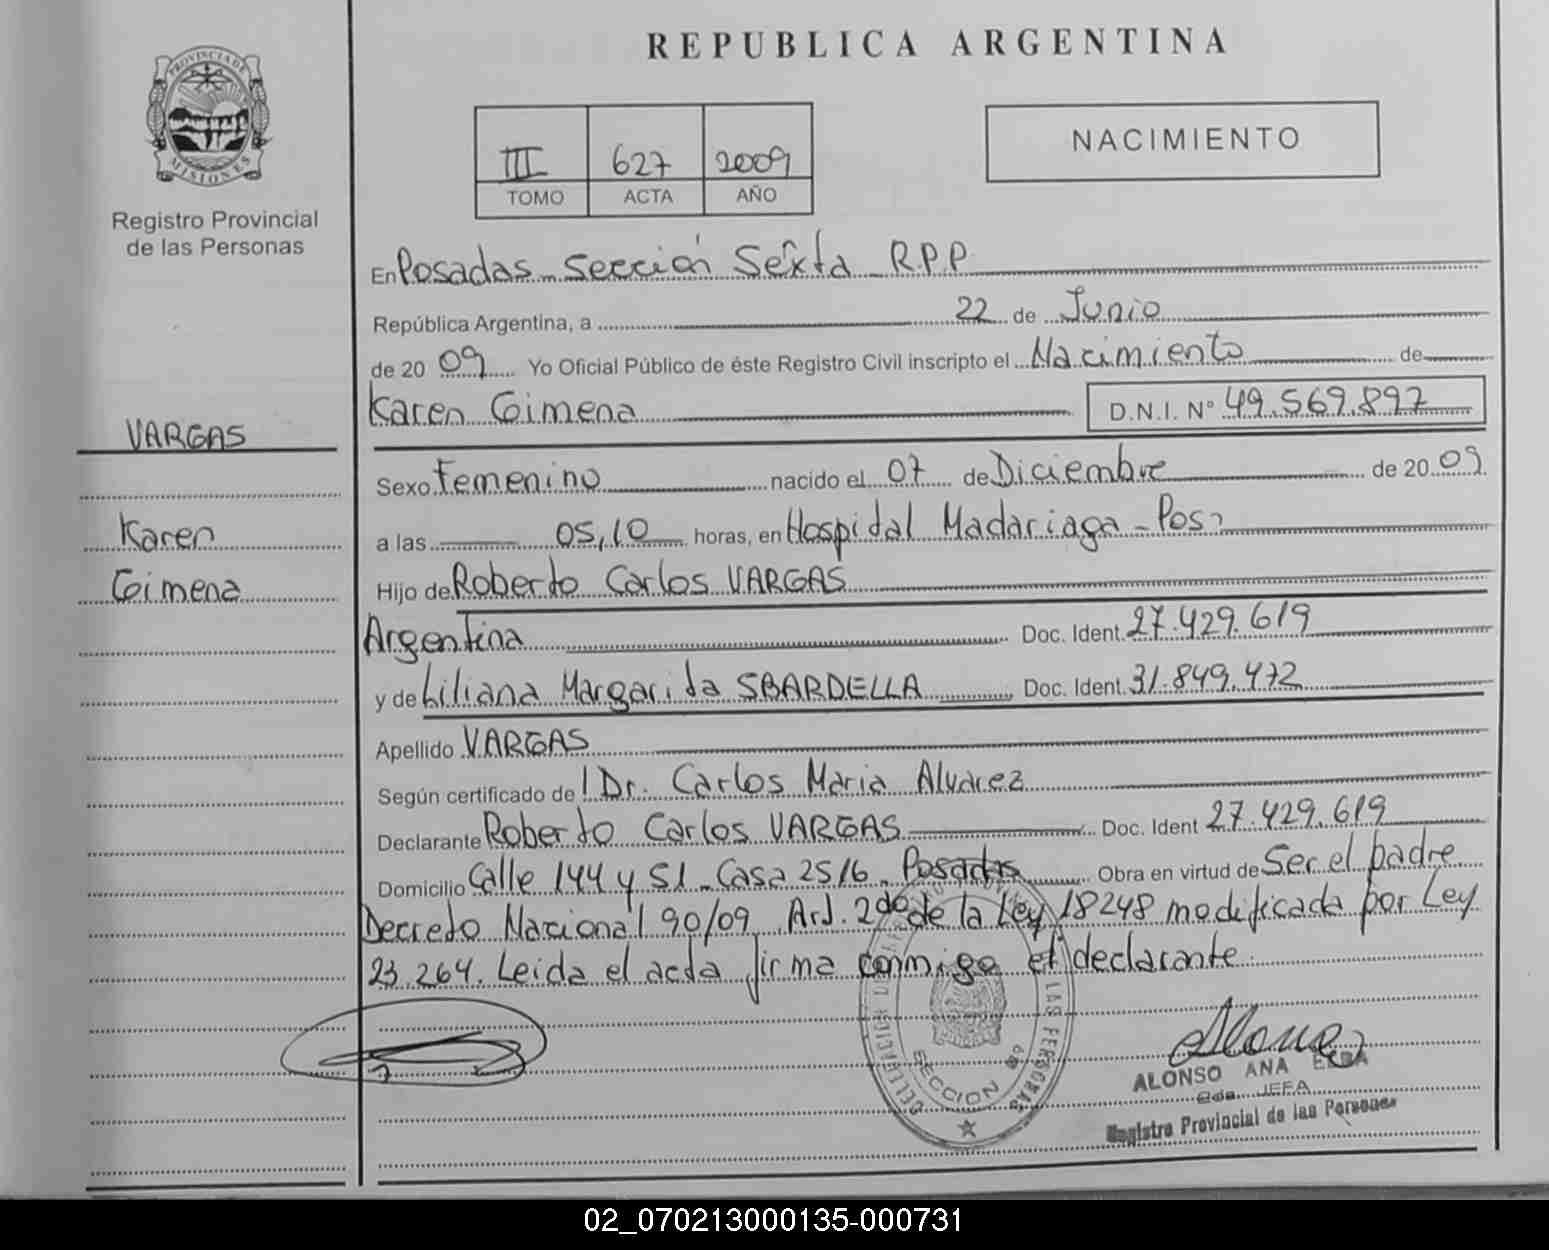 REPUBLICA ARGENTINA
PROVINCIA DE
MISIONES
Registro Provincial
de las Personas
III 627 2009
TOMO ACTA AÑO
NACIMIENTO
En Posadas - Sección Sexta R.P.P
República Argentina, a 22 de Junio
de 2009 Yo Oficial Público de éste Registro Civil inscripto el Nacimiento de
Karen Gimena D.N.I. N° 49.569.897
VARGAS
Karen
Gimena
Sexo Femenino nacido el 07 de Diciembre de 2009
a las 05,10 horas, en Hospital Madariaga - Pos
Hijo de Roberto Carlos VARGAS
Argentina Doc. Ident. 27.429.619
y de Liliana Margarita SBARDELLA Doc. Ident. 31.849.472
Apellido VARGAS
Según certificado de l Dr. Carlos Maria Alvarez
Declarante Roberto Carlos VARGAS Doc. Ident 27.429.619
Domicilio Calle 144 y 51 - Casa 2516 - Posadas Obra en virtud de Ser el padre
Decreto Nacional 90/09. Art. 2do de la Ley 18248 modificada por Ley
23.264. Leida el acta firma conmigo el declarante
SECCION
LAS PERSONAS
ALONSO ANA ELBA
2da. JEFA
Registro Provincial de las Personas
02_070213000135-000731